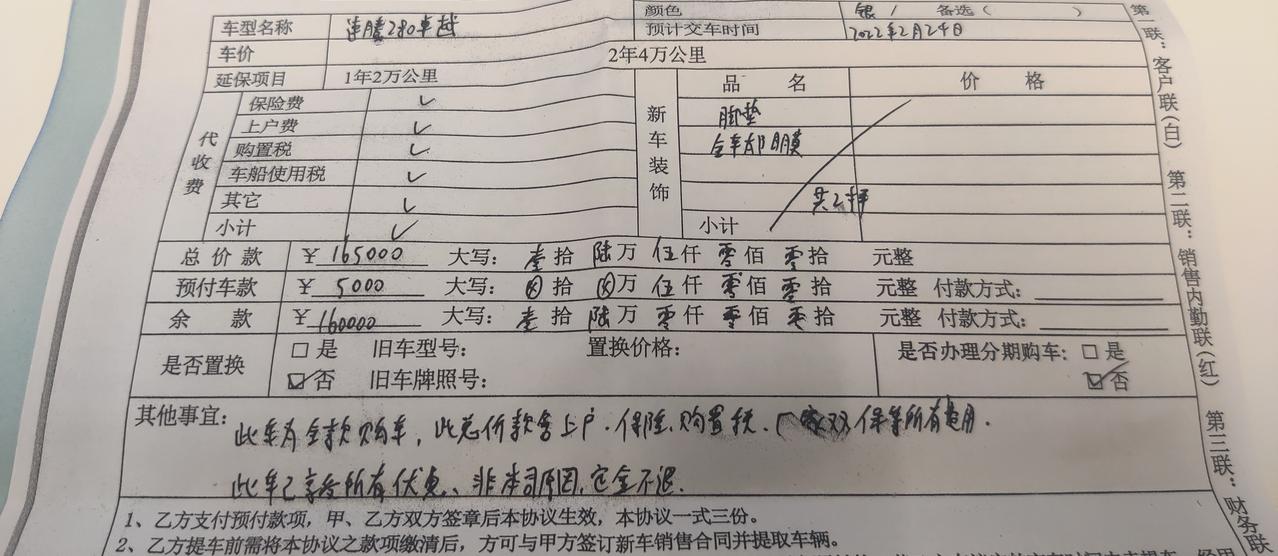 颜色 银 / 备选( )
车型名称 速腾280卓越 预计交车时间 2022年2月24日
车价 2年4万公里
延保项目 1年2万公里 品 名 价 格
代收费 新车装饰
保险费 ✓ 脚垫
上户费 ✓ 全车邦朋膜
购置税 ✓
车船使用税 ✓
其它 ✓ 共2样
小计 ✓ 小计
总价款 ¥ 165000 大写: 壹拾陆万伍仟零佰零拾 元整
预付车款 ¥ 5000 大写: ⊗拾⊗万伍仟零佰零拾 元整 付款方式:
余 款 ¥ 160000 大写: 壹拾陆万零仟零佰零拾 元整 付款方式:
是否置换 □是 旧车型号: 置换价格: 是否办理分期购车: □是
☑否 旧车牌照号: ☑否
其他事宜: 此车为全款购车,此总价款含上户.保险.购置税. 双保等所有费用.
此车已享受所有优惠、非本司原因,定金不退.
1、乙方支付预付款项,甲、乙方双方签章后本协议生效,本协议一式三份。
2、乙方提车前需将本协议之款项缴清后,方可与甲方签订新车销售合同并提取车辆。
第一联:客户联(白) 第二联:销售内勤联(红) 第三联:财务联